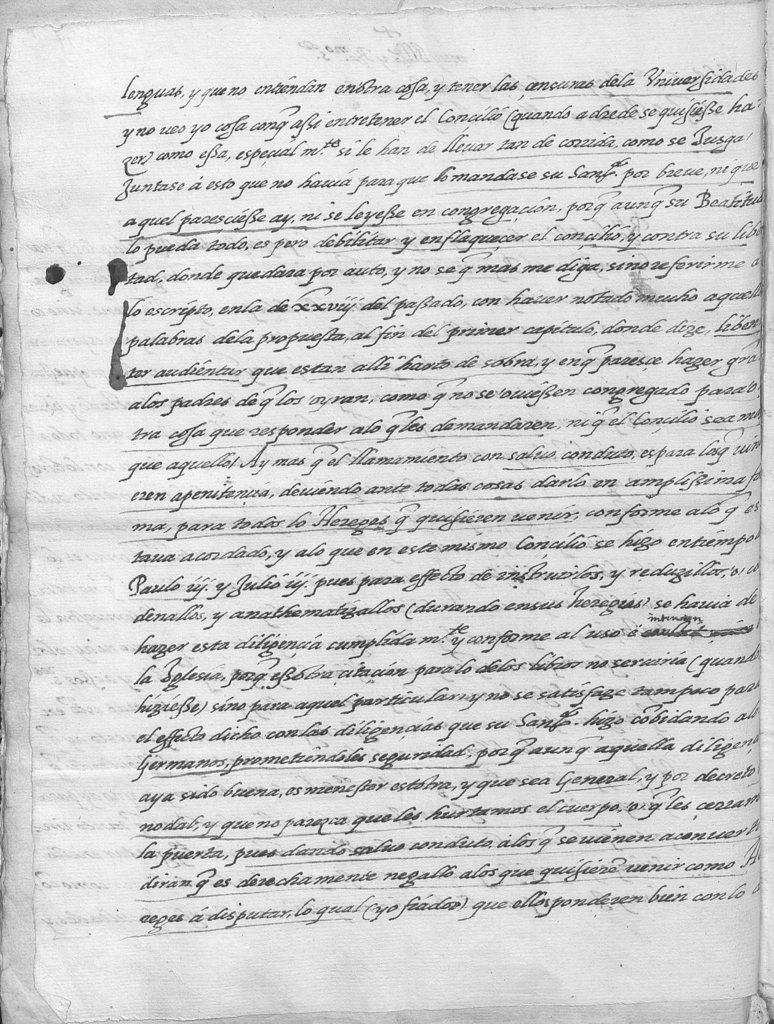 lenguas, y que no entiendan en otra cosa, y tener las censuras dela Vniversidades
y no veo yo cosa conq̃ assi entretener el Concilio (quando adrede se quisiesse ha
zer) como essa, especial m.te si le han de lleuar tan de corrida, como se Jusga
Juntase á esto que no hauia para que lo mandase su San.d por breue, ni que
aquel paresciesse ay, ni se leyesse en congregación, porq̃ aunq̃ su Beatitud
lo pueda todo, es pero debilitar y enflaquecer el concilio, y contra su liber
tad, donde quedara por auto, y no se q̃ mas me diga, sino referirme a
lo escripto, en la de xxviij del passado, con hauer notado mucho aquellas
palabras dela propuesta, al fin del primer capitulo, donde dize, libenter
audientur que estan alli harto de sobra, y enq̃ paresce hazer gra
alos padres de q̃ los oyran, como q̃ no se ouiessen congregado para o
tra cosa que responder alo q̃ les demandaren, ni q̃ el Concilio sea mas
que aquello / Ay mas q̃ el llamamiento con saluo conduto, es para los q̃ vini
eren a penitencia, deuiendo ante todas cosas darlo en amplissima for
ma, para todos lo Hereges q̃ quisieren venir, conforme alo q̃ es
taua acordado, y alo que en este mismo Concilio se hizo en tiempo
Paulo iij. y Julio iij. pues para effecto de instruirlos, y reduzillos, o co
denallos, y anathematizallos (durando en sus heregias) se hauia de
hazer esta diligencia cumplida m.te y conforme al uso
la Iglesia, porq̃ essotra citación para lo delos libros no seruiria (quando
hiziesse) sino para aquel particular / y no se satisfaze tampoco para
el effecto dicho con las diligencias que su San.d hizo cõbidando alos
Germanos, prometiendoles seguridad. porq̃ aunq̃ aquella diligen
aya sido buena, es menester estotra, y que sea General, y por decreto
nodal, y que no parezca que les hurtamos el cuerpo, o q̃ les cerramos
la puerta, pues dando saluo conduto á los q̃ se vienen a conuertir
diran q̃ es derechamente negallo alos que quisierẽ venir como He
reges á disputar, lo qual (yo fiador) que ellos ponderen bien con lo